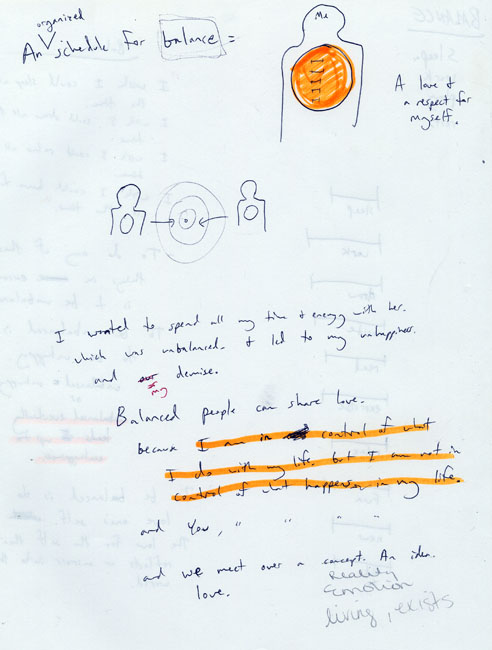 organized
An schedule for balance =
Me
A love &
a respect for
myself.
I wanted to spend all my time & energy with her.
which was unbalanced. & led to my unhappiness.
and my demise.
Balanced people can share love.
because I am in control of what
I do with my life. but I am not in
control of what happens in my life.
and You, " " " "
and we meet over a concept. An idea.
love.
Reality
Emotion
living, exists